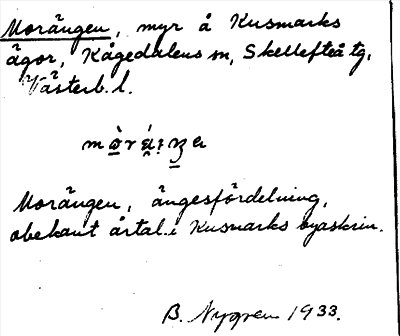 Morängen, myr å Kusmarks
ägor, Kågedalens sn, Skellefteå tg,
Västerb. l.
Morängen, ängesfördelning,
obekant årtal i Kusmarks byaskrin.
B. Nygren 1933.